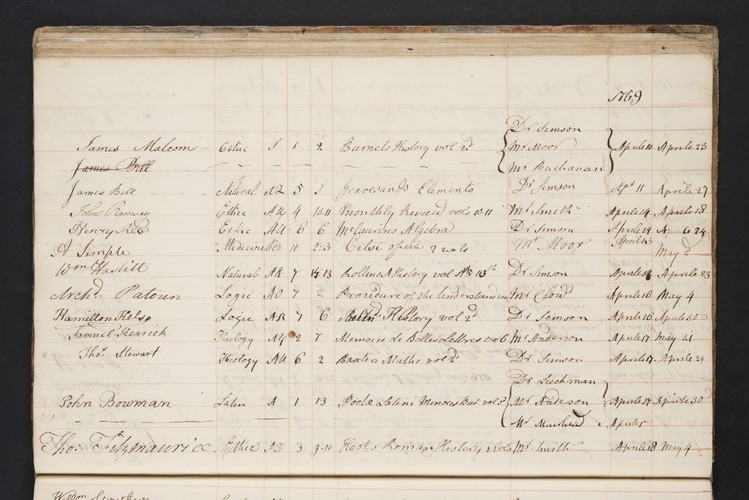 1760
Dr. Simson
James Malcom Ethic 1 2 Burnets History vol 2d Mr Moor Aprile 11 Aprile 23
Mr Buchanan
James Bell
James Bell Natural 5 1 Gravesands Elements Dr Simson Apr 11 Aprile 29
John Ramsay Ethic 4 10.11 Monthly Review vols 10.11 Mr Smith Aprile 14 Aprile 18
Henry Ethic 6 6 McLaurins Algebra Dr Simson Aprile 14 24
A Simple Medicine 11 2:3 Celsi opera 2 vols Mr Moor Aprile 15 May 2d
Wm Haslitt Natural AR 7 Rollins A History vol Dr Simson Aprile Aprile 23
Archd. Patoun Logic 7 2 Procedure of the Understanding Mr Clow Aprile 16 May 4
Hamilton Logic AR 7 6 History vol 2d Dr Simson Aprile 16 Aprile 30
Samuel Henrick 2 7 Memoire de Belles Lettres vol 6 Mr Anderson Aprile 17 May 21
Thos. Stewart 6 2 Baxters Mathe vol 2d Dr Simson Aprile 17 Aprile 24
Dr Leechman
John Bowman Latin A 1 13 Poetæ Latini Minores Mr Anderson Aprile 17 Aprile 30
Mr Muirhead Aprile
Thos. Fitzmaurice Ethic 3 9-10 Hooks Roman History 2 vols Mr Smith Aprile 18 May 4